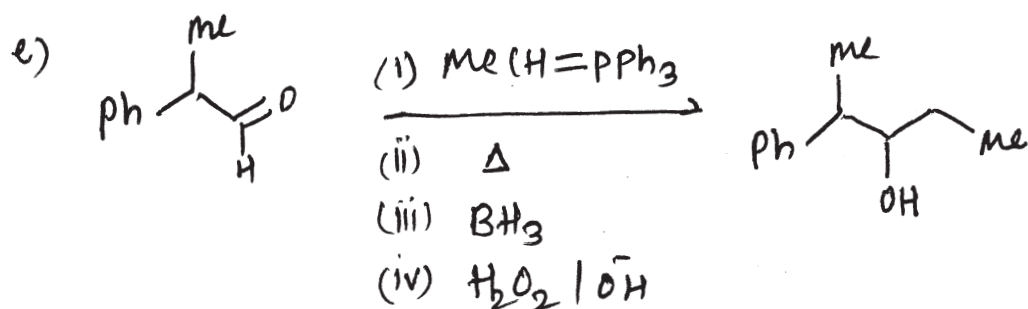 e)
Me
Ph
O
H
(i) MeCH=PPh3
(ii) Δ
(iii) BH3
(iv) H2O2 / OH̄
Me
Ph
OH
Me